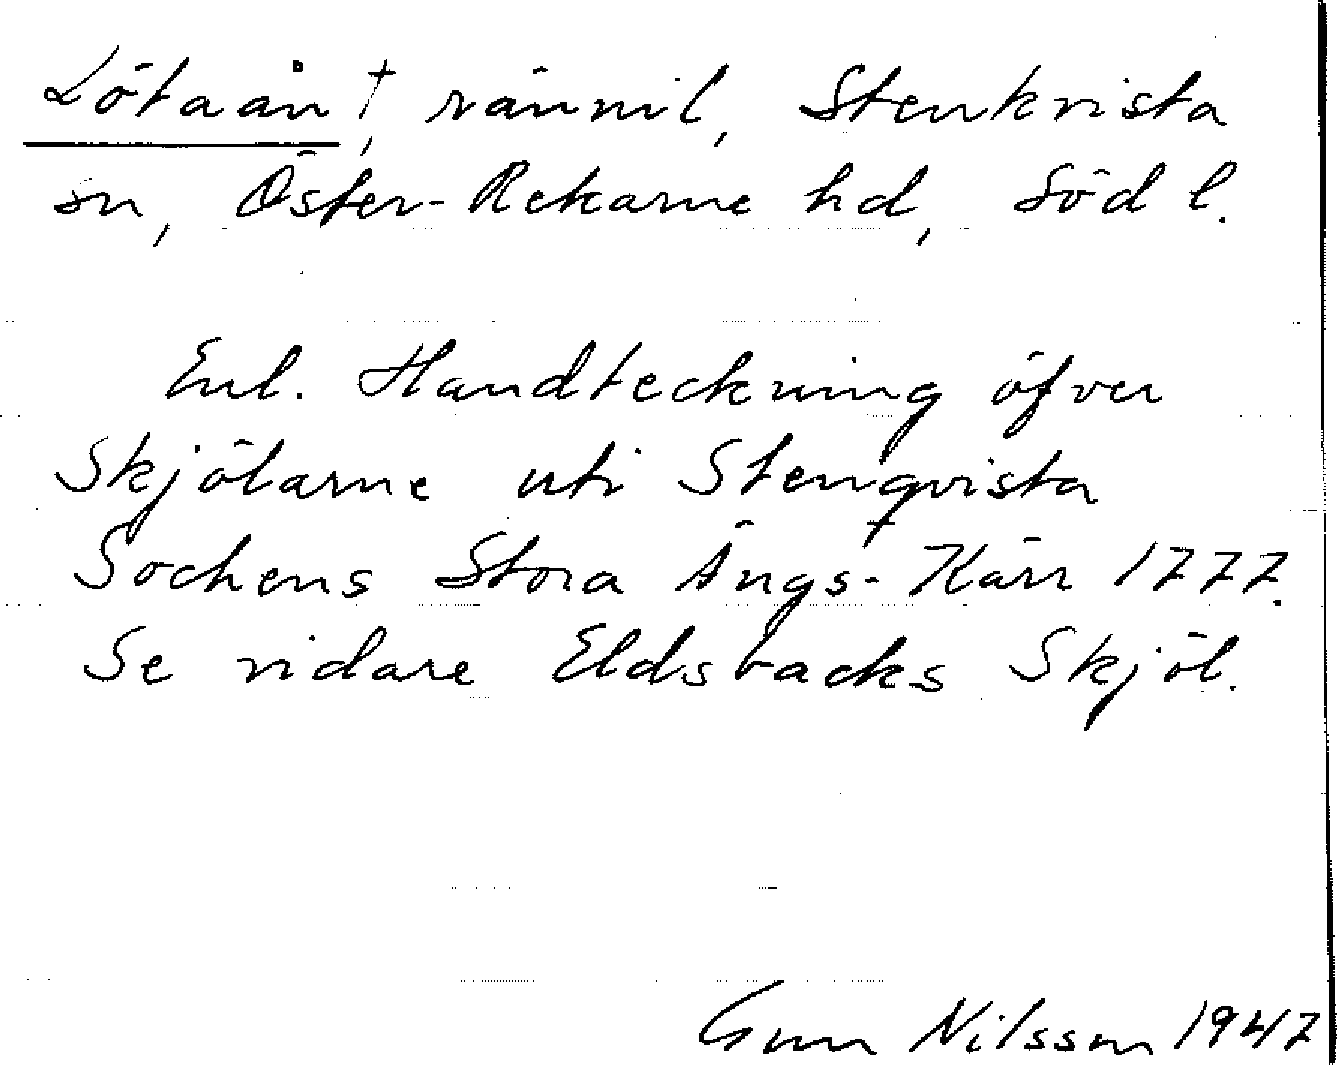 Lötaån †, rännil, Stenkvista
sn, Öster-Rekarne hd, Söd l.
Enl. Handteckning öfver
Skjölarne uti Stenqvista
Sochens Stora Ängs-Kärr 1777.
Se vidare Eldsbacks Skjöl.
Gun Nilsson 1947